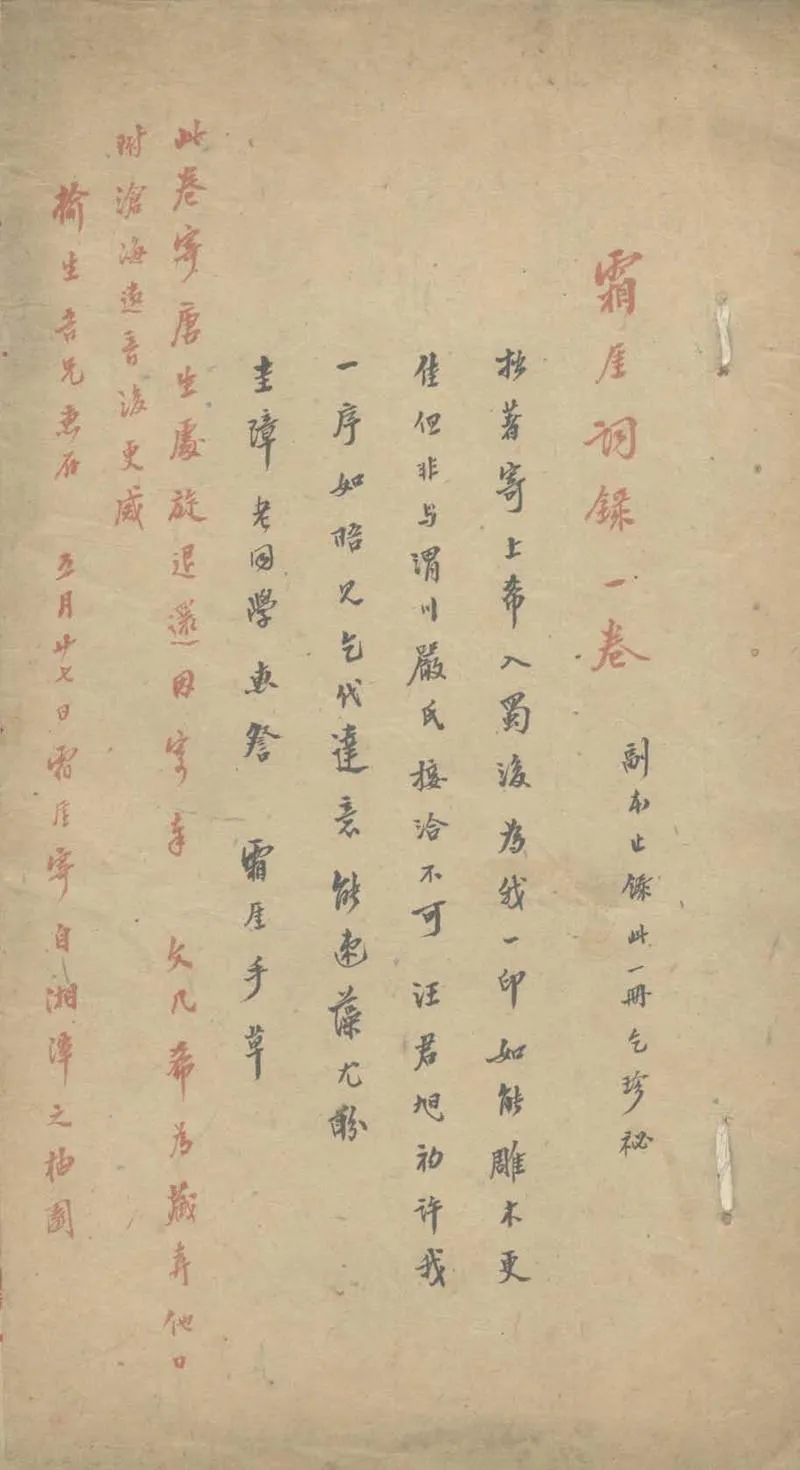 霜厓词錄一卷
副本止錄此一冊乞珍祕
拙著寄上希入蜀後為我一印如能雕木更
佳但非与渭川嚴氏接洽不可汪君旭初许我
一序如晤兄乞代達意能速藻尤盼
圭璋老同學惠詧 霜厓手草
此卷寄唐生處旋退還因寄奉 文几希為藏弆他日
附滄海遺音後更感
榆生吾兄惠存 五月廿七日霜厓寄自湘潭之柚園